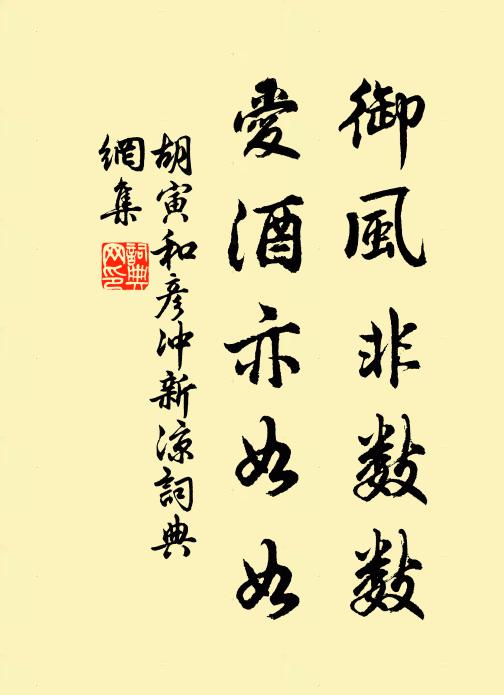 御風非數數
愛酒亦如如
胡寅和彥沖新涼詞典
網集
詞典網印